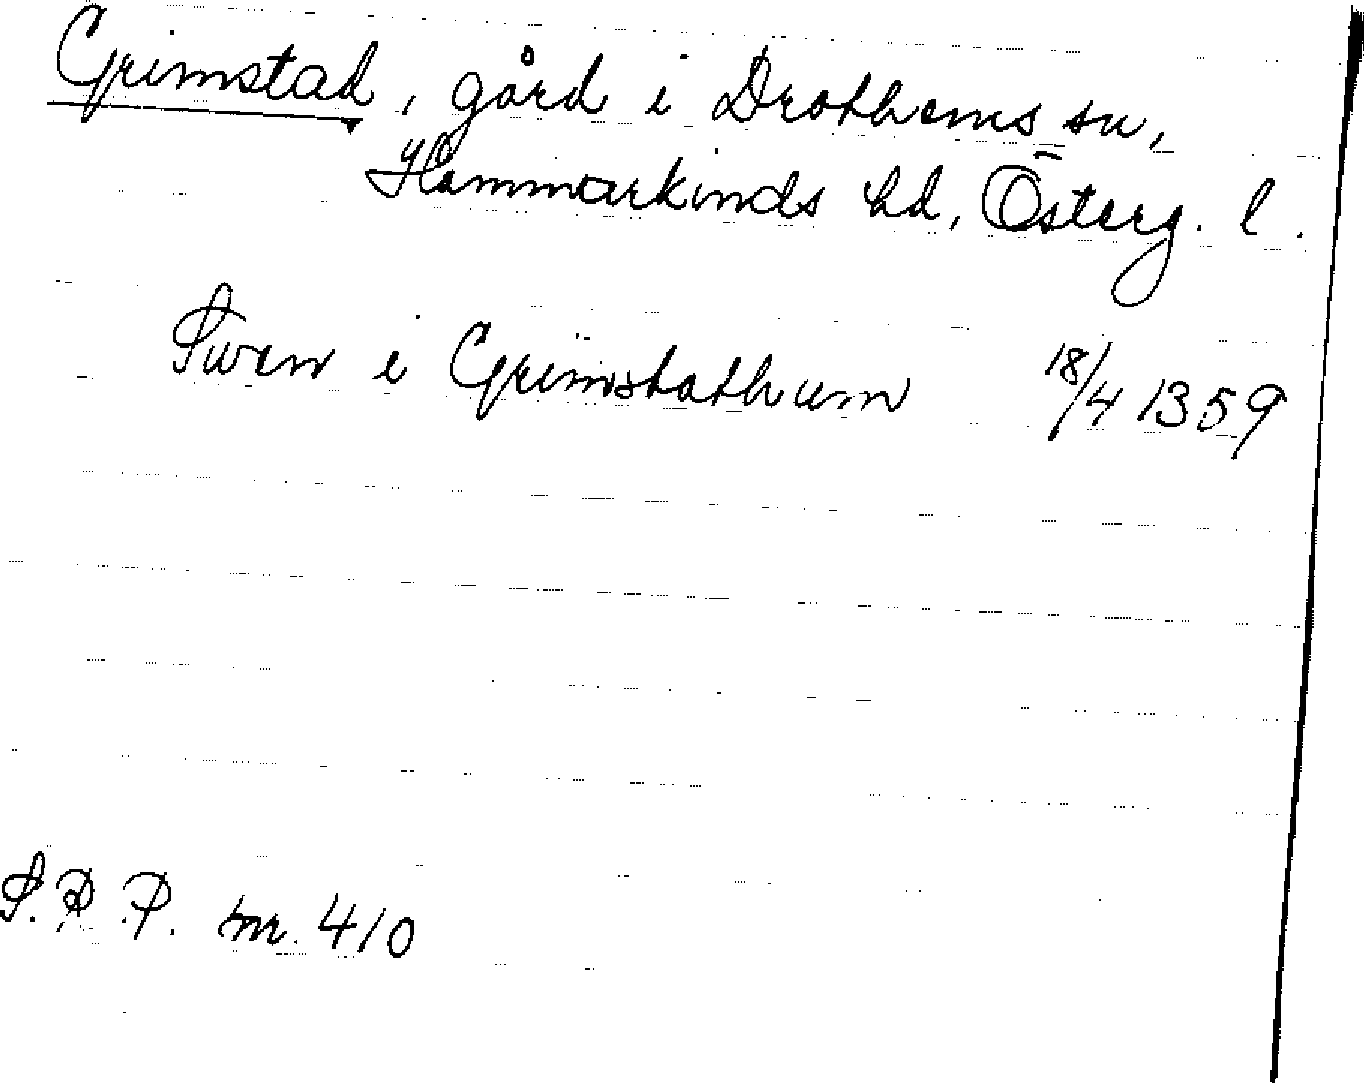 Grimstad, gård i Drothems sn,
Hammarkinds hd, Österg. l.
Swen i Grimstathum 18/4 1359
S.R.P. nr. 410